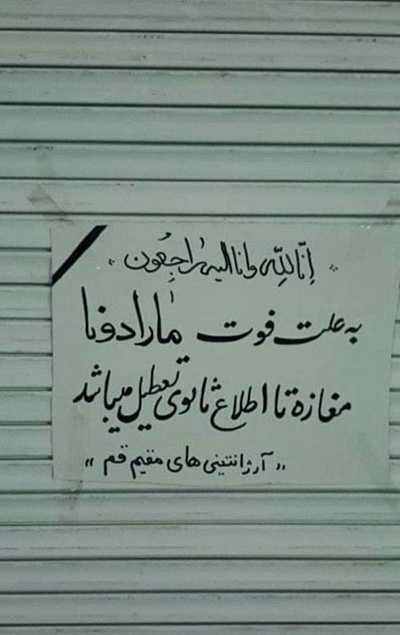 إنّا لِلّهِ و انا الیه راجِعُون
به علت فوت مارادونا
مغازه تا اطلاع ثانوی تعطیل میباشد
„ آرژانتینی های مقیم قم „